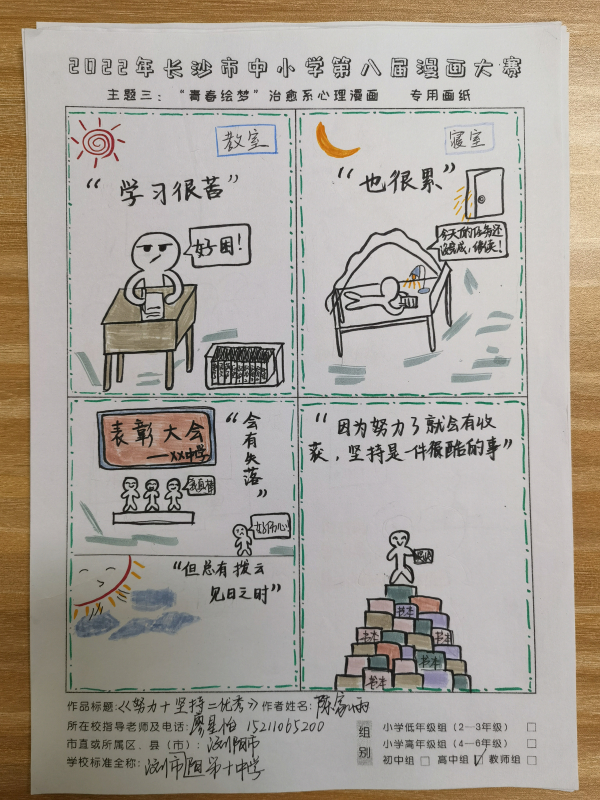 2022年长沙市中小学第八届漫画大赛
主题三：“青春绘梦”治愈系心理漫画 专用画纸
教室
“学习很苦”
好困！
寝室
“也很累”
今天的任务还
没完成，继续！
表彰大会
——XX中学
“会有失落”
我真棒
好伤心！
“但总有拨云
见日之时”
“因为努力了就会有收
获，坚持是一件很酷的事”
书本
书本
书本
书本
书本
作品标题：《努力+坚持=优秀》 作者姓名：陈家雨
所在校指导老师及电话：廖星怡 15211065200
市直或所属区、县（市）：浏阳市
学校标准全称：浏阳市第十中学
组别
小学低年级组（2—3年级）
小学高年级组（4—6年级）
初中组 高中组 教师组